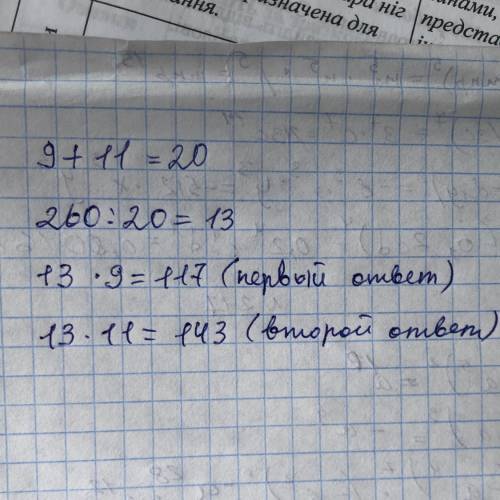 ання.
значена для
ри ніг
предста
9 + 11 = 20
260 ÷ 20 = 13
13 · 9 = 117 (первый ответ)
13 · 11 = 143 (второй ответ)